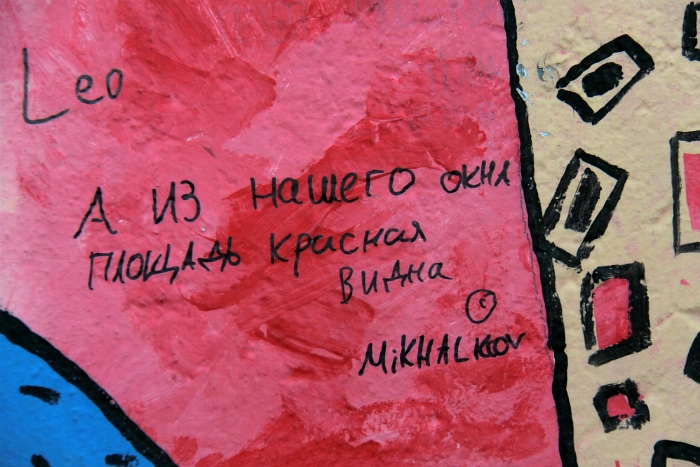 Leo
А ИЗ НАШЕГО ОКНА
ПЛОЩАДЬ КРАСНАЯ
ВИДНА
©
MiKHALKOV